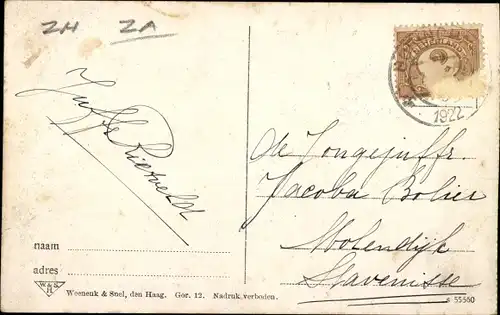 ZH ZA
NEDERLAND
1922
Rietveld
de Jongejuffr.
Jacoba Bolier
Molendijk
Stavenisse
naam
adres
W & S
H
Weenenk & Snel, den Haag. Gor. 12. Nadruk verboden.
s 55560